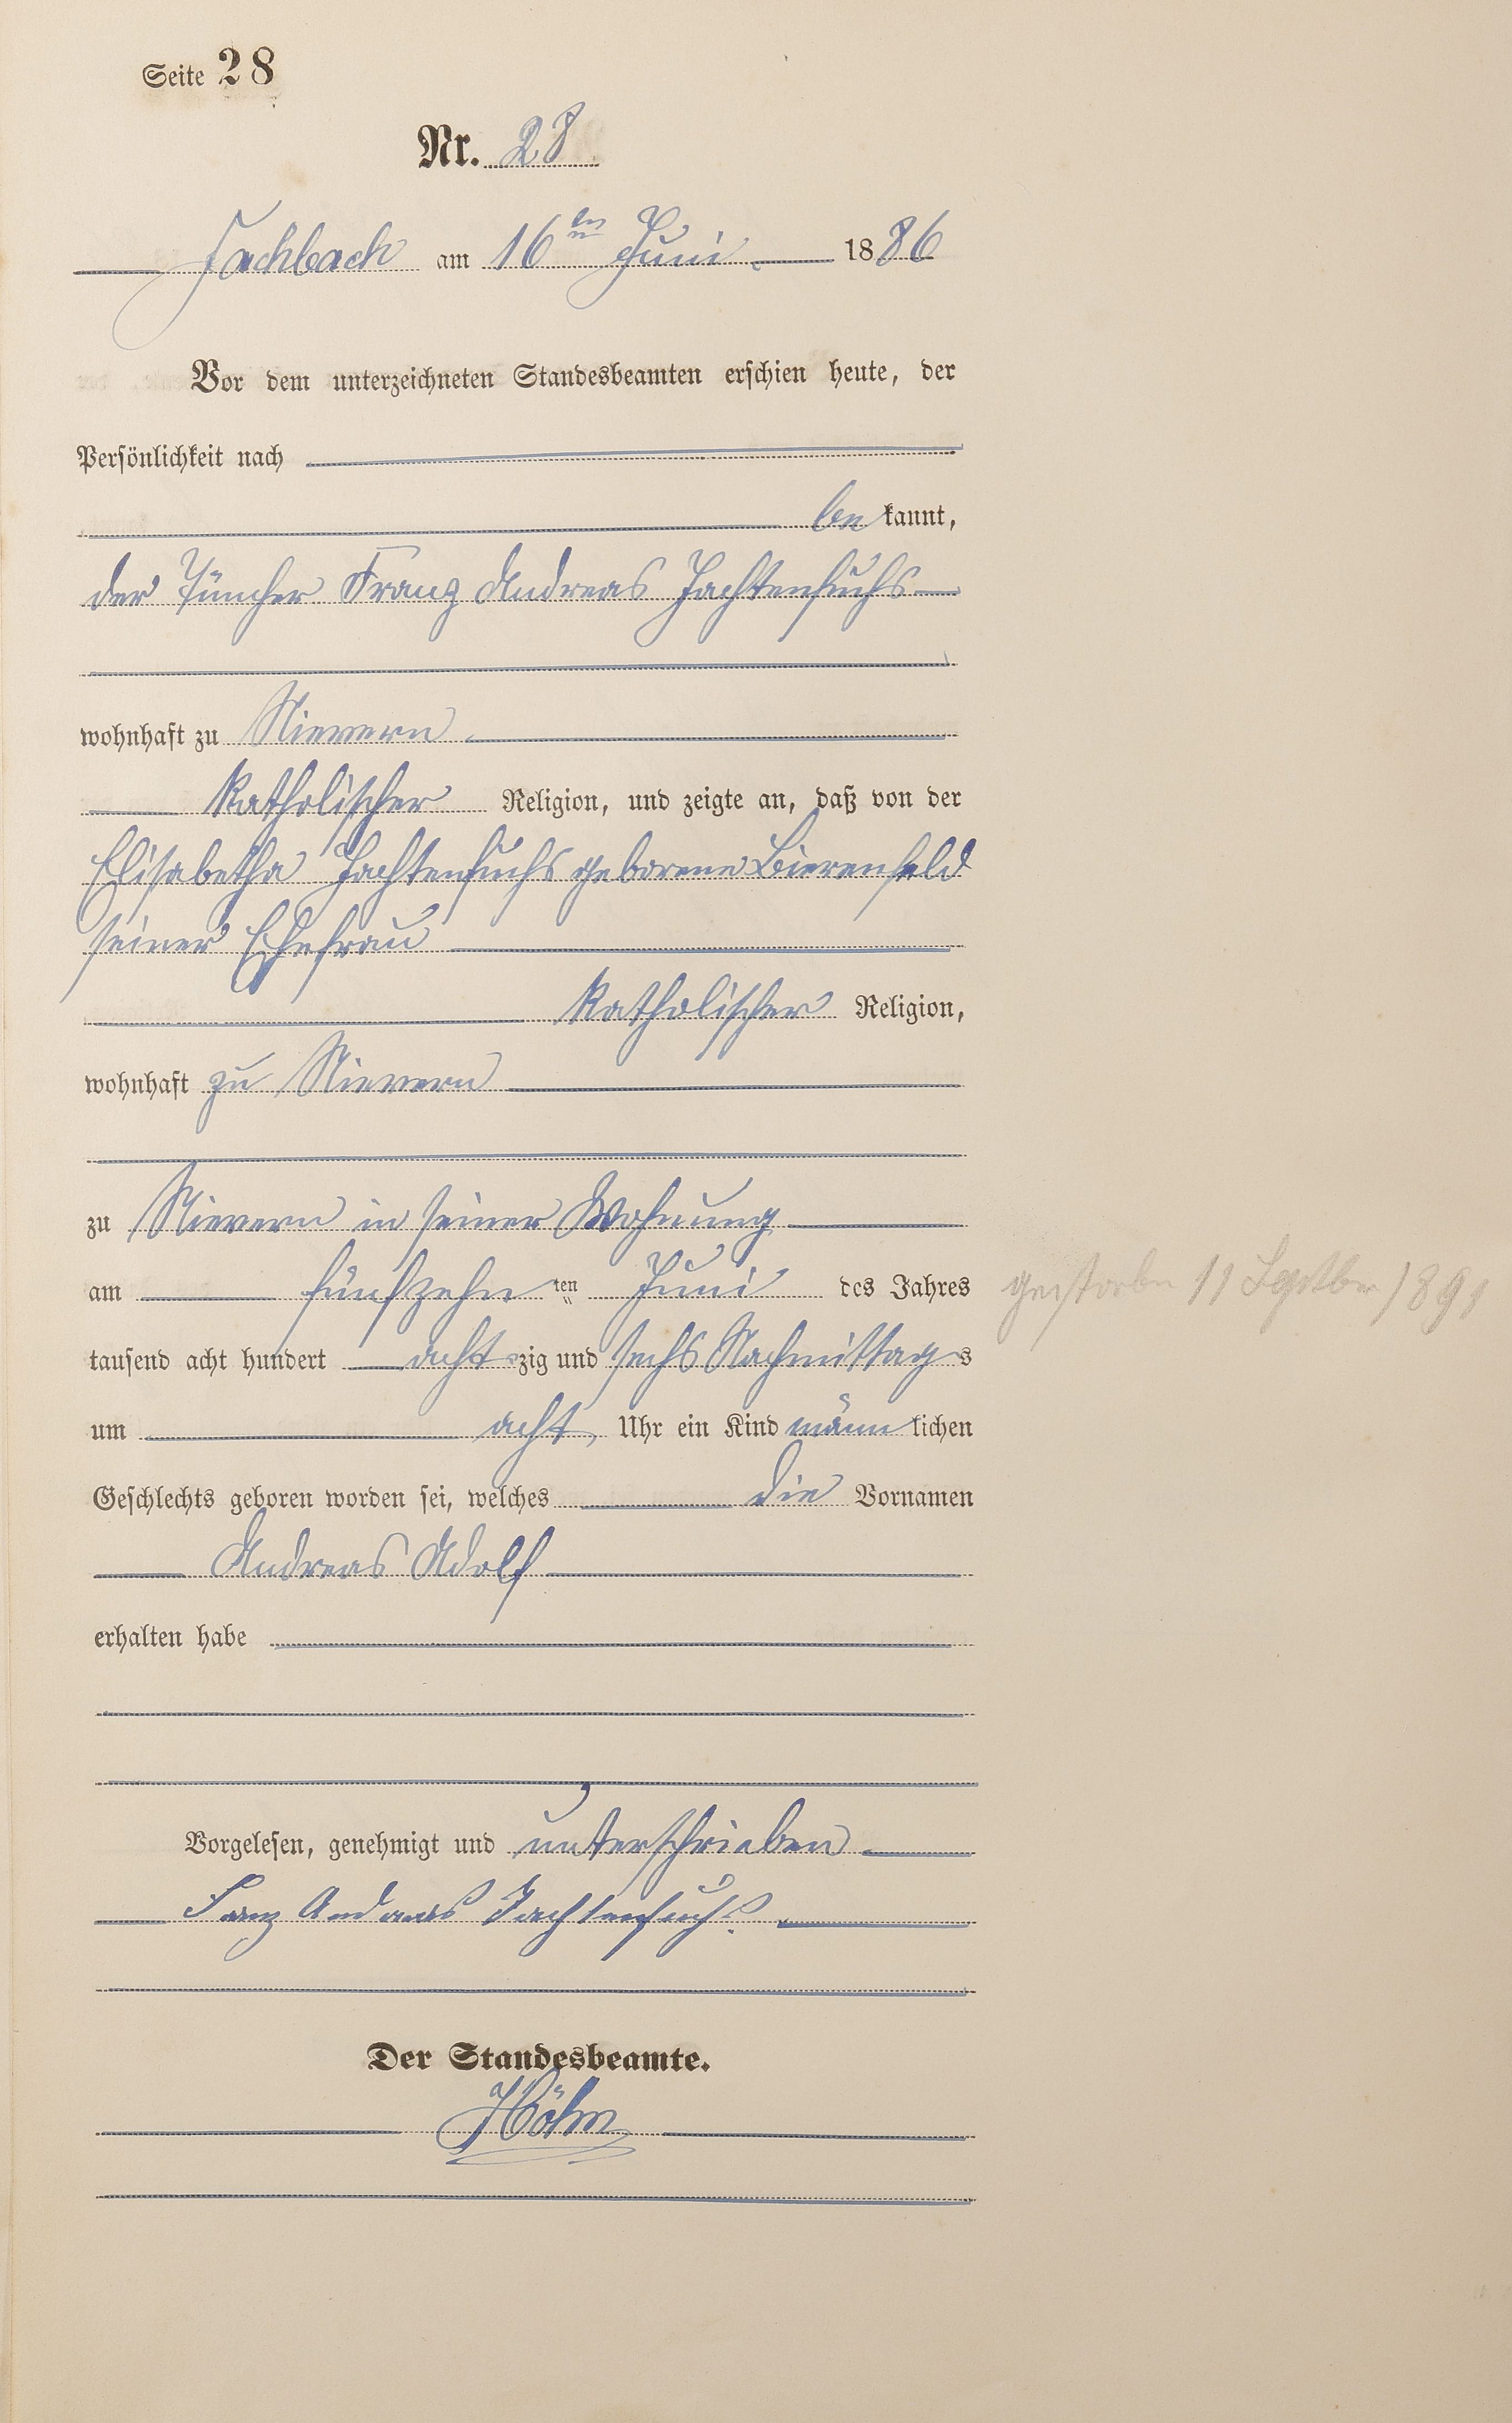 Seite 28
Nr. 28
Fachbach am 16ten Juni 1886
Vor dem unterzeichneten Standesbeamten erschien heute, der
Persönlichkeit nach
be kannt,
der Tüncher Franz Andreas Jachtenfuchs
wohnhaft zu Nievern
katholischer Religion, und zeigte an, daß von der
Elisabetha Jachtenfuchs geborene Bierenfeld
seiner Ehefrau
katholischer Religion,
wohnhaft zu Nievern
zu Nievern in seiner Wohnung
am fünfzehn ten Juni des Jahres
gestorben 11 Septber 1891
tausend acht hundert acht zig und sechs Nachmittag s
um acht Uhr ein Kind männ lichen
Geschlechts geboren worden sei, welches die Vornamen
Andreas Adolf
erhalten habe
Vorgelesen, genehmigt und unterschrieben
Franz Andreas Jachtenfuchs
Der Standesbeamte.